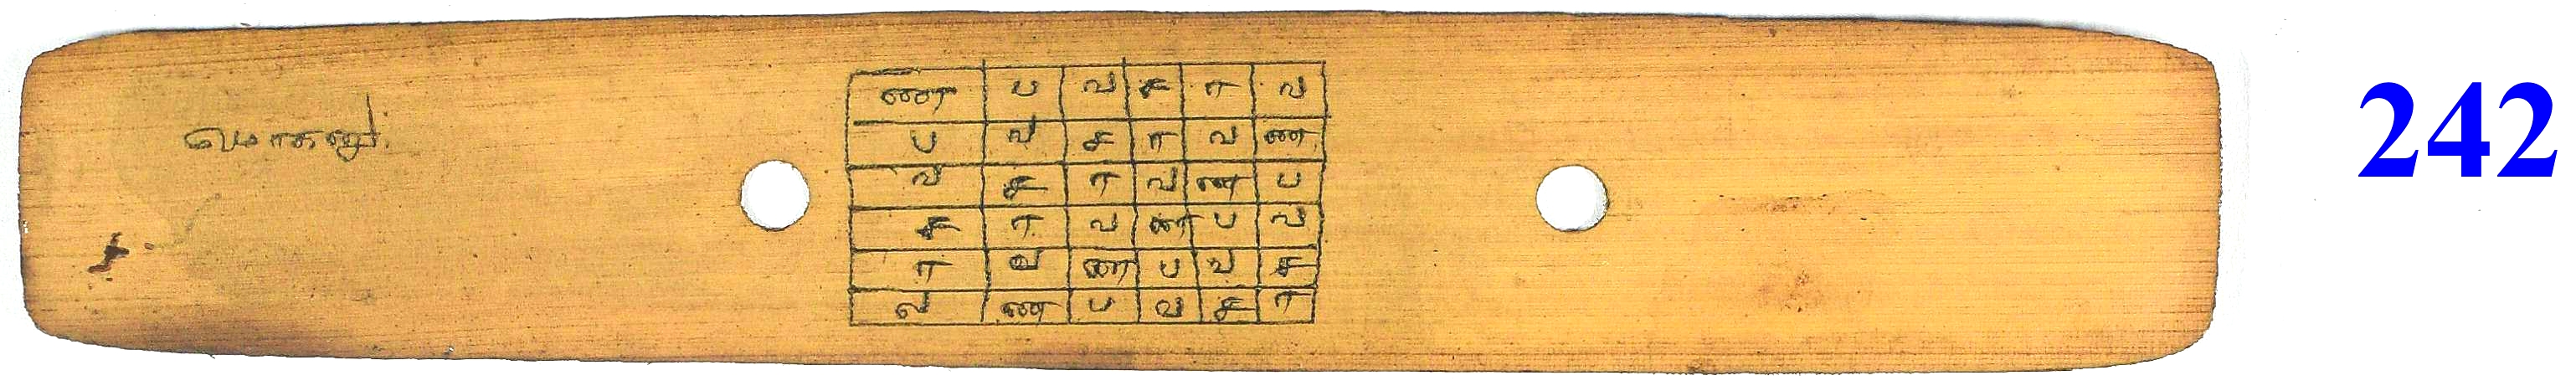 ண ப வ ச ர வ
ப வ ச ர வ ண
வ ச ர வ ண ப
ச ர வ ண ப வ
ர வ ண ப வ ச
வ ண ப வ ச ர
242